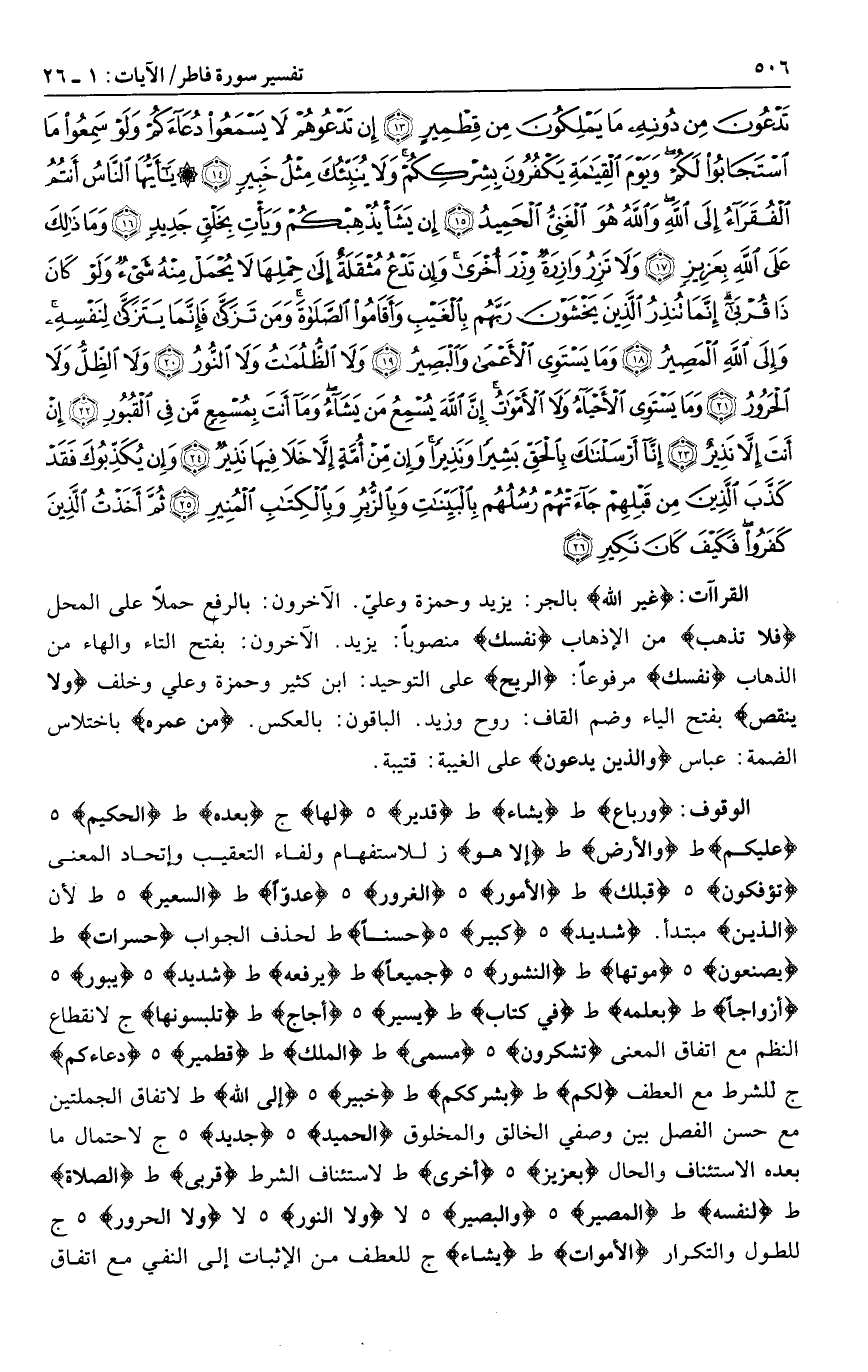 ٥٠٦
تفسير سورة فاطر/ الآيات: ١ ـ ٢٦
تَدْعُونَ مِن دُونِهِۦ مَا يَمْلِكُونَ مِن قِطْمِيرٍ ﴿١٣﴾ إِن تَدْعُوهُمْ لَا يَسْمَعُوا۟ دُعَآءَكُمْ وَلَوْ سَمِعُوا۟ مَا
ٱسْتَجَابُوا۟ لَكُمْ ۖ وَيَوْمَ ٱلْقِيَٰمَةِ يَكْفُرُونَ بِشِرْكِكُمْ ۚ وَلَا يُنَبِّئُكَ مِثْلُ خَبِيرٍ ﴿١٤﴾ ۞ يَٰٓأَيُّهَا ٱلنَّاسُ أَنتُمُ
ٱلْفُقَرَآءُ إِلَى ٱللَّهِ ۖ وَٱللَّهُ هُوَ ٱلْغَنِىُّ ٱلْحَمِيدُ ﴿١٥﴾ إِن يَشَأْ يُذْهِبْكُمْ وَيَأْتِ بِخَلْقٍ جَدِيدٍ ﴿١٦﴾ وَمَا ذَٰلِكَ
عَلَى ٱللَّهِ بِعَزِيزٍ ﴿١٧﴾ وَلَا تَزِرُ وَازِرَةٌ وِزْرَ أُخْرَىٰ ۚ وَإِن تَدْعُ مُثْقَلَةٌ إِلَىٰ حِمْلِهَا لَا يُحْمَلْ مِنْهُ شَىْءٌ وَلَوْ كَانَ
ذَا قُرْبَىٰٓ ۗ إِنَّمَا تُنذِرُ ٱلَّذِينَ يَخْشَوْنَ رَبَّهُم بِٱلْغَيْبِ وَأَقَامُوا۟ ٱلصَّلَوٰةَ ۚ وَمَن تَزَكَّىٰ فَإِنَّمَا يَتَزَكَّىٰ لِنَفْسِهِۦ ۚ
وَإِلَى ٱللَّهِ ٱلْمَصِيرُ ﴿١٨﴾ وَمَا يَسْتَوِى ٱلْأَعْمَىٰ وَٱلْبَصِيرُ ﴿١٩﴾ وَلَا ٱلظُّلُمَٰتُ وَلَا ٱلنُّورُ ﴿٢٠﴾ وَلَا ٱلظِّلُّ وَلَا
ٱلْحَرُورُ ﴿٢١﴾ وَمَا يَسْتَوِى ٱلْأَحْيَآءُ وَلَا ٱلْأَمْوَٰتُ ۚ إِنَّ ٱللَّهَ يُسْمِعُ مَن يَشَآءُ ۖ وَمَآ أَنتَ بِمُسْمِعٍ مَّن فِى ٱلْقُبُورِ ﴿٢٢﴾ إِنْ
أَنتَ إِلَّا نَذِيرٌ ﴿٢٣﴾ إِنَّآ أَرْسَلْنَٰكَ بِٱلْحَقِّ بَشِيرًا وَنَذِيرًا ۚ وَإِن مِّنْ أُمَّةٍ إِلَّا خَلَا فِيهَا نَذِيرٌ ﴿٢٤﴾ وَإِن يُكَذِّبُوكَ فَقَدْ
كَذَّبَ ٱلَّذِينَ مِن قَبْلِهِمْ جَآءَتْهُمْ رُسُلُهُم بِٱلْبَيِّنَٰتِ وَبِٱلزُّبُرِ وَبِٱلْكِتَٰبِ ٱلْمُنِيرِ ﴿٢٥﴾ ثُمَّ أَخَذْتُ ٱلَّذِينَ
كَفَرُوا۟ ۖ فَكَيْفَ كَانَ نَكِيرِ ﴿٢٦﴾
القراآت: ﴿غير الله﴾ بالجر: يزيد وحمزة وعليّ. الآخرون: بالرفع حملاً على المحل
﴿فلا تذهب﴾ من الإذهاب ﴿نفسك﴾ منصوباً: يزيد. الآخرون: بفتح التاء والهاء من
الذهاب ﴿نفسك﴾ مرفوعاً: ﴿الريح﴾ على التوحيد: ابن كثير وحمزة وعلي وخلف ﴿ولا
ينقص﴾ بفتح الياء وضم القاف: روح وزيد. الباقون: بالعكس. ﴿من عمره﴾ باختلاس
الضمة: عباس ﴿والذين يدعون﴾ على الغيبة: قتيبة.
الوقوف: ﴿ورباع﴾ ط ﴿يشاء﴾ ط ﴿قدير﴾ ٥ ﴿لها﴾ ج ﴿بعده﴾ ط ﴿الحكيم﴾ ٥
﴿عليكم﴾ ط ﴿والأرض﴾ ط ﴿إلا هو﴾ ز للاستفهام ولفاء التعقيب وإتحاد المعنى
﴿تؤفكون﴾ ٥ ﴿قبلك﴾ ط ﴿الأمور﴾ ٥ ﴿الغرور﴾ ٥ ﴿عدوّاً﴾ ط ﴿السعير﴾ ٥ ط لأن
﴿الذين﴾ مبتدأ. ﴿شديد﴾ ٥ ﴿كبير﴾ ٥ ﴿حسناً﴾ ط لحذف الجواب ﴿حسرات﴾ ط
﴿يصنعون﴾ ٥ ﴿موتها﴾ ط ﴿النشور﴾ ٥ ﴿جميعاً﴾ ط ﴿يرفعه﴾ ط ﴿شديد﴾ ٥ ﴿يبور﴾ ٥
﴿أزواجاً﴾ ط ﴿بعلمه﴾ ط ﴿في كتاب﴾ ط ﴿يسير﴾ ٥ ﴿أجاج﴾ ط ﴿تلبسونها﴾ ج لانقطاع
النظم مع اتفاق المعنى ﴿تشكرون﴾ ٥ ﴿مسمى﴾ ط ﴿الملك﴾ ط ﴿قطمير﴾ ٥ ﴿دعاءكم﴾
ج للشرط مع العطف ﴿لكم﴾ ط ﴿بشرككم﴾ ط ﴿خبير﴾ ٥ ﴿إلى الله﴾ ط لاتفاق الجملتين
مع حسن الفصل بين وصفي الخالق والمخلوق ﴿الحميد﴾ ٥ ﴿جديد﴾ ٥ ج لاحتمال ما
بعده الاستئناف والحال ﴿بعزيز﴾ ٥ ﴿أخرى﴾ ط لاستئناف الشرط ﴿قربى﴾ ط ﴿الصلاة﴾
ط ﴿لنفسه﴾ ط ﴿المصير﴾ ٥ ﴿والبصير﴾ ٥ لا ﴿ولا النور﴾ ٥ لا ﴿ولا الحرور﴾ ٥ ج
للطول والتكرار ﴿الأموات﴾ ط ﴿يشاء﴾ ج للعطف من الإثبات إلى النفي مع اتفاق